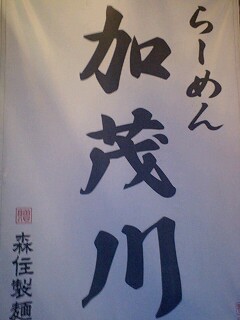 らーめん
加茂川
贈
森住製麺